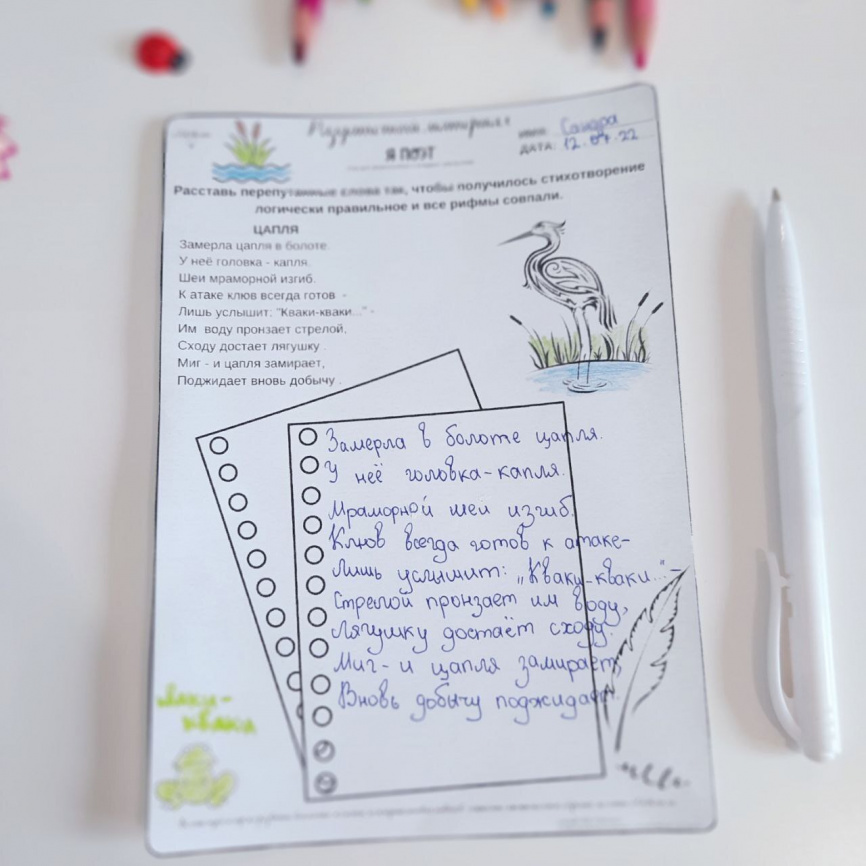 Я ПОЭТ
ИМЯ: Сандра
ДАТА: 12.07.22
Расставь перепутанные слова так, чтобы получилось стихотворение
логически правильное и все рифмы совпали.
ЦАПЛЯ
Замерла цапля в болоте.
У неё головка - капля.
Шеи мраморной изгиб.
К атаке клюв всегда готов -
Лишь услышит: "Кваки-кваки..." -
Им воду пронзает стрелой,
Сходу достает лягушку.
Миг - и цапля замирает,
Поджидает вновь добычу.
Замерла в болоте цапля.
У неё головка-капля.
Мраморной шеи изгиб.
Клюв всегда готов к атаке-
Лишь услышит: „Кваки-кваки..."-
Стрелой пронзает им воду,
Лягушку достаёт сходу.
Миг- и цапля замирает,
Вновь добычу поджидает.